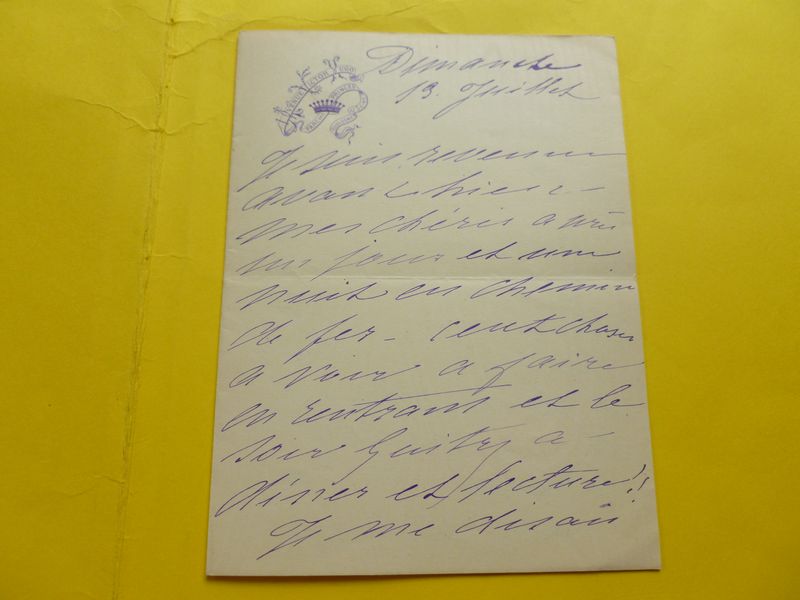 Avenue Victor Hugo
Dimanche
13. Juillet
Je suis revenue
avant hier -
mes chéris après
un jour et une
nuit en chemin
de fer - cent choses
a voir a faire
en rentrant et le
soir Guitry a -
diner et lecture!!
Je me disais